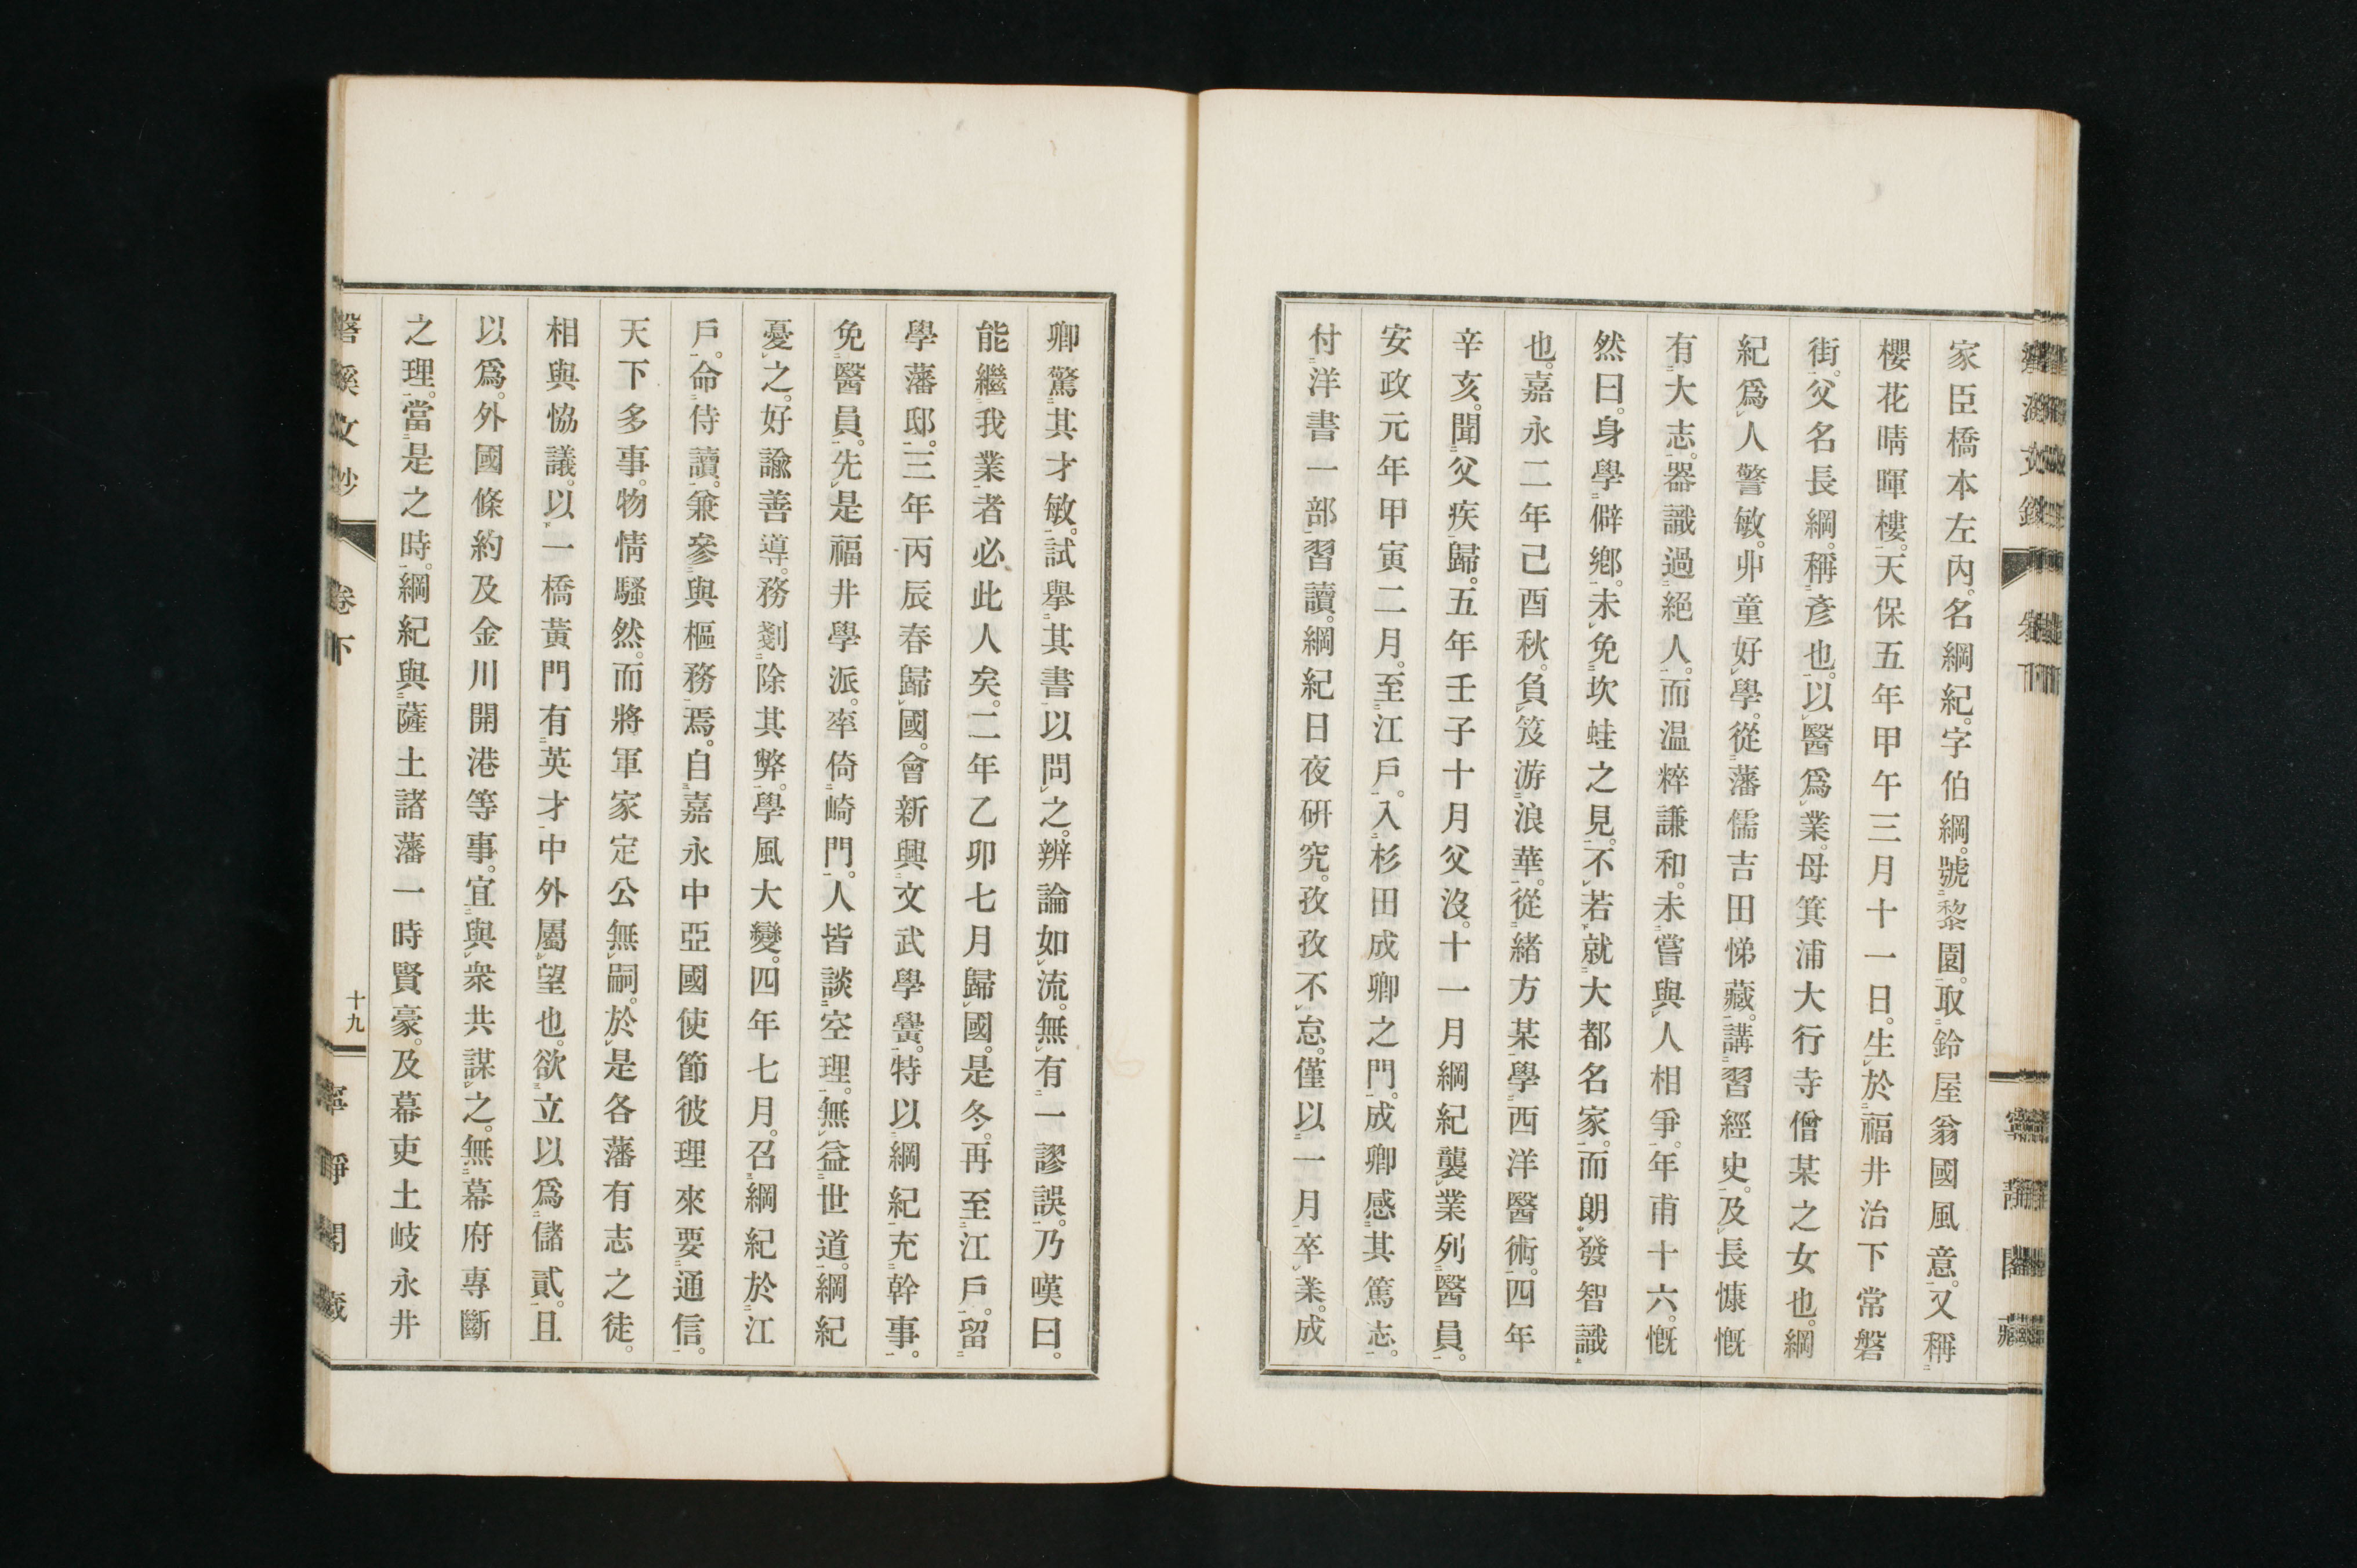 家臣橋本左內。名綱紀。字伯綱。號黎園。取鈴屋翁國風意。又稱
櫻花晴暉樓。天保五年甲午三月十一日。生於福井治下常磐
街。父名長綱。稱彥也。以醫爲業。母箕浦大行寺僧某之女也。綱
紀爲人警敏。丱童好學。從藩儒吉田悌藏。講習經史。及長慷慨
有大志。器識過絕人。而温粹謙和。未嘗與人相爭。年甫十六。慨
然曰。身學僻鄉。未免坎蛙之見。不若就大都名家。而朗發智識
也。嘉永二年己酉秋。負笈游浪華。從緒方某學西洋醫術。四年
辛亥。聞父疾歸。五年壬子十月父沒。十一月綱紀襲業列醫員。
安政元年甲寅二月。至江戶。入杉田成卿之門。成卿感其篤志。
付洋書一部習讀。綱紀日夜研究。孜孜不怠。僅以一月卒業。成
卿驚其才敏。試舉其書以問之。辨論如流。無有一謬誤。乃嘆曰。
能繼我業者必此人矣。二年乙卯七月歸國。是冬。再至江戶。留
學藩邸。三年丙辰春歸國。會新興文武學黌。特以綱紀充幹事。
免醫員。先是福井學派。率倚崎門。人皆談空理。無益世道。綱紀
憂之。好諭善導。務剗除其弊。學風大變。四年七月。召綱紀於江
戶。命侍讀。兼參與樞務焉。自嘉永中亞國使節彼理來要通信。
天下多事。物情騷然。而將軍家定公無嗣。於是各藩有志之徒。
相與恊議。以一橋黃門有英才中外屬望也。欲立以爲儲貳。且
以爲。外國條約及金川開港等事。宜與衆共謀之。無幕府專斷
之理。當是之時。綱紀與薩土諸藩一時賢豪。及幕吏土岐永井
磐溪文鈔 卷下
十九
寧靜閣藏